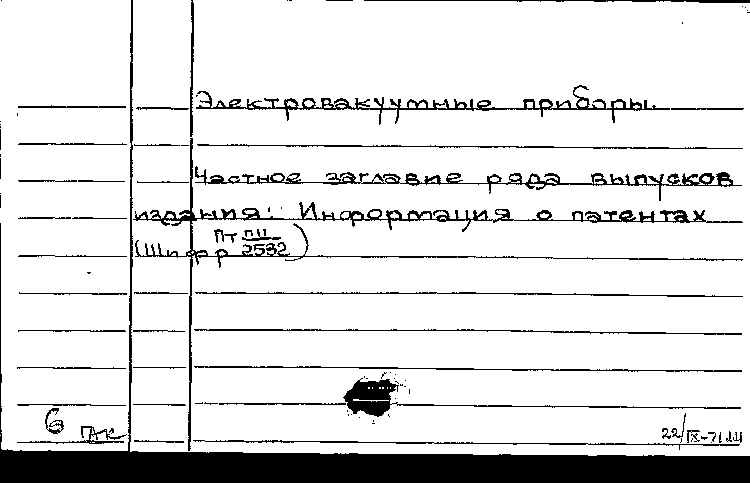 Электровакуумные приборы.
Частное заглавие ряда выпусков
издания: Информация о патентах
(Шифр Пт ПII/2532)
6 ГАК
22/IX-71